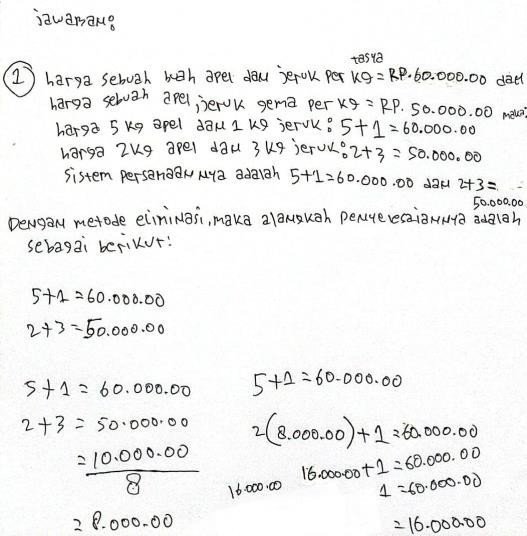 jawaban:
tasya
1 harga sebuah buah apel dan jeruk per kg = RP.60.000.00 dan
harga sebuah apel, jeruk gema per kg = RP. 50.000.00 maka:
harga 5 kg apel dan 1 kg jeruk : 5+1 = 60.000.00
harga 2kg apel dan 3 kg jeruk : 2+3 = 50.000.00
sistem persamaan nya adalah 5+1=60.000.00 dan 2+3=
50.000.00
Dengan metode eliminasi, maka alangkah penyelesaiannya adalah
sebagai berikut:
5+1=60.000.00
2+3=50.000.00
5+1 = 60.000.00
2+3 = 50.000.00
= 10.000.00
8
= 8.000.00
5+1 = 60.000.00
2(8.000.00)+1=60.000.00
16.000.00+1=60.000.00
16.000.00
1=60.000.00
=16.000.00